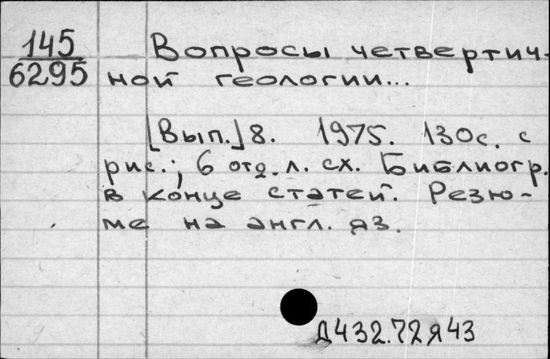 145
6295
Вопросы четвертич-
ной геологии...
[Вып.] 8. 1975. 130 с. с
рис.; 6 отд. л. сх. Библиогр.
в конце статей. Резю-
ме на англ. яз.
Д432.72я43